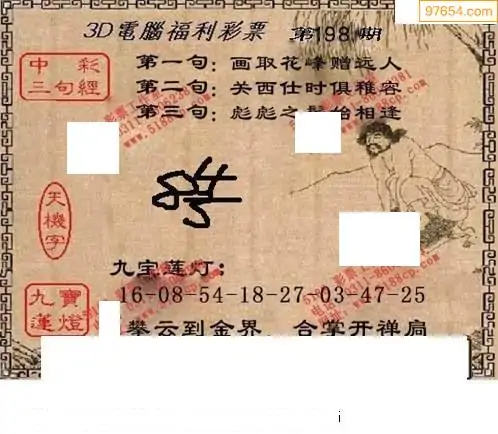 97654.com
3D電腦福利彩票 第198期
中彩
三句經
第一句：画取花峰赠远人
第二句：关西仕时俱稚容
第三句：彪彪之髮始相逢
天機字
九宝莲灯：
九寶蓮燈
16-08-54-18-27-03-47-25
攀云到金界，合掌开禅扃
i